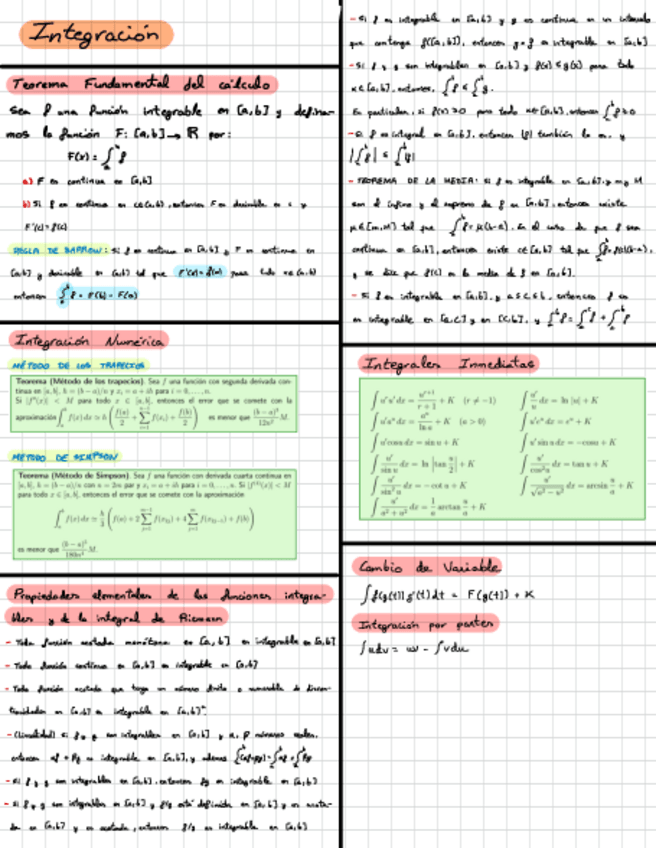 Integración
Teorema Fundamental del cálculo
Sea f una función integrable en [a,b] y defina-
mos la función F: [a,b] → R por:
F(x) = ∫ₐˣ f
a) F es continua en [a,b]
b) Si f es continua en c∈(a,b), entonces F es derivable en c y
F'(c) = f(c)
REGLA DE BARROW: Si f es continua en [a,b] y F es continua en
[a,b] y derivable en (a,b) tal que F'(x) = f(x) para todo x∈(a,b)
entonces ∫ₐᵇ f = F(b) - F(a)
Integración Numérica
MÉTODO DE LOS TRAPECIOS
Teorema (Método de los trapecios). Sea f una función con segunda derivada con-
tinua en [a,b], h = (b − a)/n y xᵢ = a + ih para i = 0, . . . , n.
Si |f''(x)| < M para todo x ∈ [a,b], entonces el error que se comete con la
aproximación ∫ₐᵇ f(x) dx ≃ h ( f(a)/2 + ∑ᵢ₌₁ⁿ⁻¹ f(xᵢ) + f(b)/2 ) es menor que (b − a)³/12n² M.
MÉTODO DE SIMPSON
Teorema (Método de Simpson). Sea f una función con derivada cuarta continua en
[a,b], h = (b−a)/n con n = 2m par y xᵢ = a + ih para i = 0, . . . , n. Si |f⁽⁴⁾(x)| < M
para todo x ∈ [a,b], entonces el error que se comete con la aproximación
∫ₐᵇ f(x) dx ≃ h/3 ( f(a) + 2 ∑ f(x₂ᵢ) + 4 ∑ f(x₂ᵢ₋₁) + f(b) )
es menor que (b − a)⁵/180n⁴ M.
Propiedades elementales de las funciones integra-
bles y de la integral de Riemann
- Toda función acotada monótona en [a,b] es integrable en [a,b]
- Toda función continua en [a,b] es integrable en [a,b]
- Toda función acotada que tenga un número finito o numerable de discon-
tinuidades en [a,b] es integrable en [a,b]
- (Linealidad) si f y g son integrables en [a,b] y α, β números reales,
entonces αf + βg es integrable en [a,b], y además
- si f y g son integrables en [a,b], entonces fg es integrable en [a,b]
- Si f y g son integrables en [a,b] y f/g está definida en [a,b] y es acota-
da en [a,b] y es acotada, entonces f/g es integrable en [a,b]
- Si f es integrable en [a,b] y g es continua en un intervalo
que contenga f([a,b]), entonces g∘f es integrable en [a,b]
- Si f y g son integrables en [a,b] y f(x) ≤ g(x) para todo
x∈[a,b], entonces, ∫ₐᵇ f ≤ ∫ₐᵇ g.
En particular, si f(x) ≥ 0 para todo x∈[a,b], entonces ∫ₐᵇ f ≥ 0
- Si f es integral en [a,b], entonces |f| también lo es, y
|∫ₐᵇ f| ≤ ∫ₐᵇ |f|
- TEOREMA DE LA MEDIA: Si f es integrable en [a,b], y m y M
son el ínfimo y el supremo de f en [a,b], entonces existe
μ∈[m,M] tal que ∫ₐᵇ f = μ(b-a). En el caso de que f sea
continua en [a,b], entonces existe c∈[a,b] tal que ∫ₐᵇ f = f(c)(b-a),
y se dice que f(c) es la media de f en [a,b].
- Si f es integrable en [a,b], y a ≤ c ≤ b, entonces f es
es integrable en [a,c] y en [c,b], y ∫ₐᵇ f = ∫ₐᶜ f + ∫ᶜᵇ f
Integrales Inmediatas
∫ uʳu' dx = uʳ⁺¹/(r + 1) + K (r ≠ −1) ∫ u'/u dx = ln |u| + K
∫ u'aᵘ dx = aᵘ/ln a + K (a > 0) ∫ u'eᵘ dx = eᵘ + K
∫ u' cos u dx = sin u + K ∫ u' sin u dx = − cos u + K
∫ u'/sin u dx = ln |tan u/2| + K ∫ u'/cos² u dx = tan u + K
∫ u'/sin² u dx = − cot u + K ∫ u'/√(a² − u²) dx = arcsin u/a + K
∫ u'/(a² + u²) dx = 1/a arctan u/a + K
Cambio de Variable
∫ f(g(t)) g'(t) dt = F(g(t)) + K
Integración por partes
∫ u dv = uv - ∫ v du